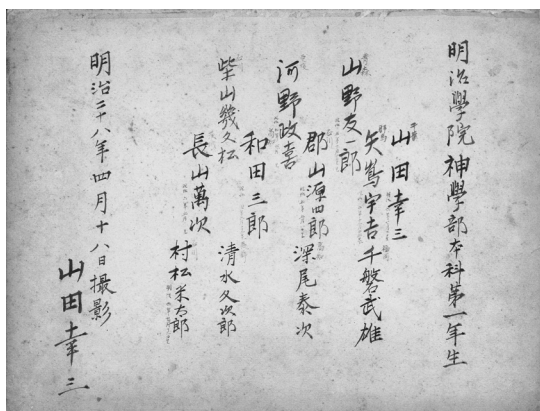 明治學院神學部本科第一年生
千葉
山田幸三
矢嶌宇吉
千磐武雄
山野友一郎
郡山源四郎
深尾泰次
河野政喜
和田三郎
清水久次郎
柴山幾久松
長山萬次
村松米太郎
明治三十八年四月十八日撮影
山田幸三